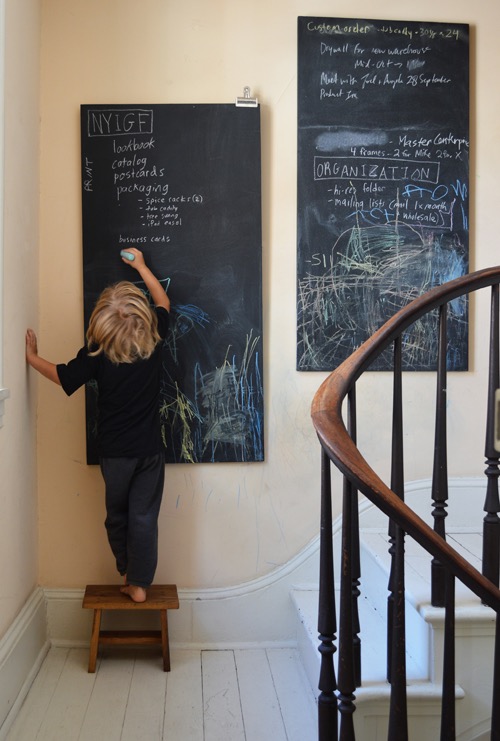 NYIGF
PRINT
lookbook
catalog
postcards
packaging
- spice racks (2)
- tub caddy
- tree swing
- iPad easel
business cards
Custom order - tub caddy - 30 3/4 x 24
Drywall for new warehouse
Mid-Oct →
Meet with Joel + Angela 28 September
Product
- Master
4 frames - 2 for Mike 24in x
ORGANIZATION
- hi-res folder
- mailing lists (mail 1 x month
wholesale)